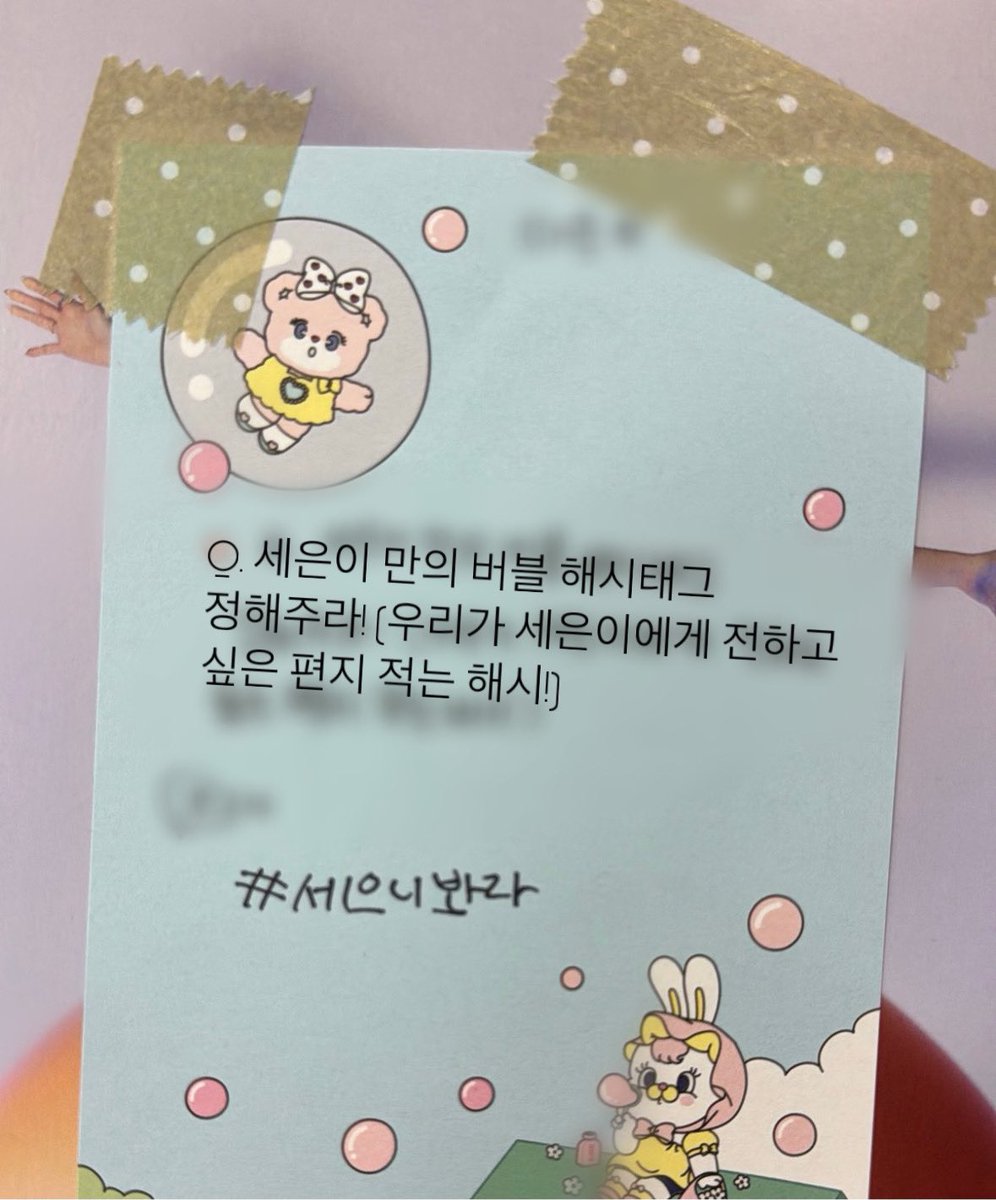 Q. 세은이 만의 버블 해시태그
정해주라! (우리가 세은이에게 전하고
싶은 편지 적는 해시!)
#세은이봐라